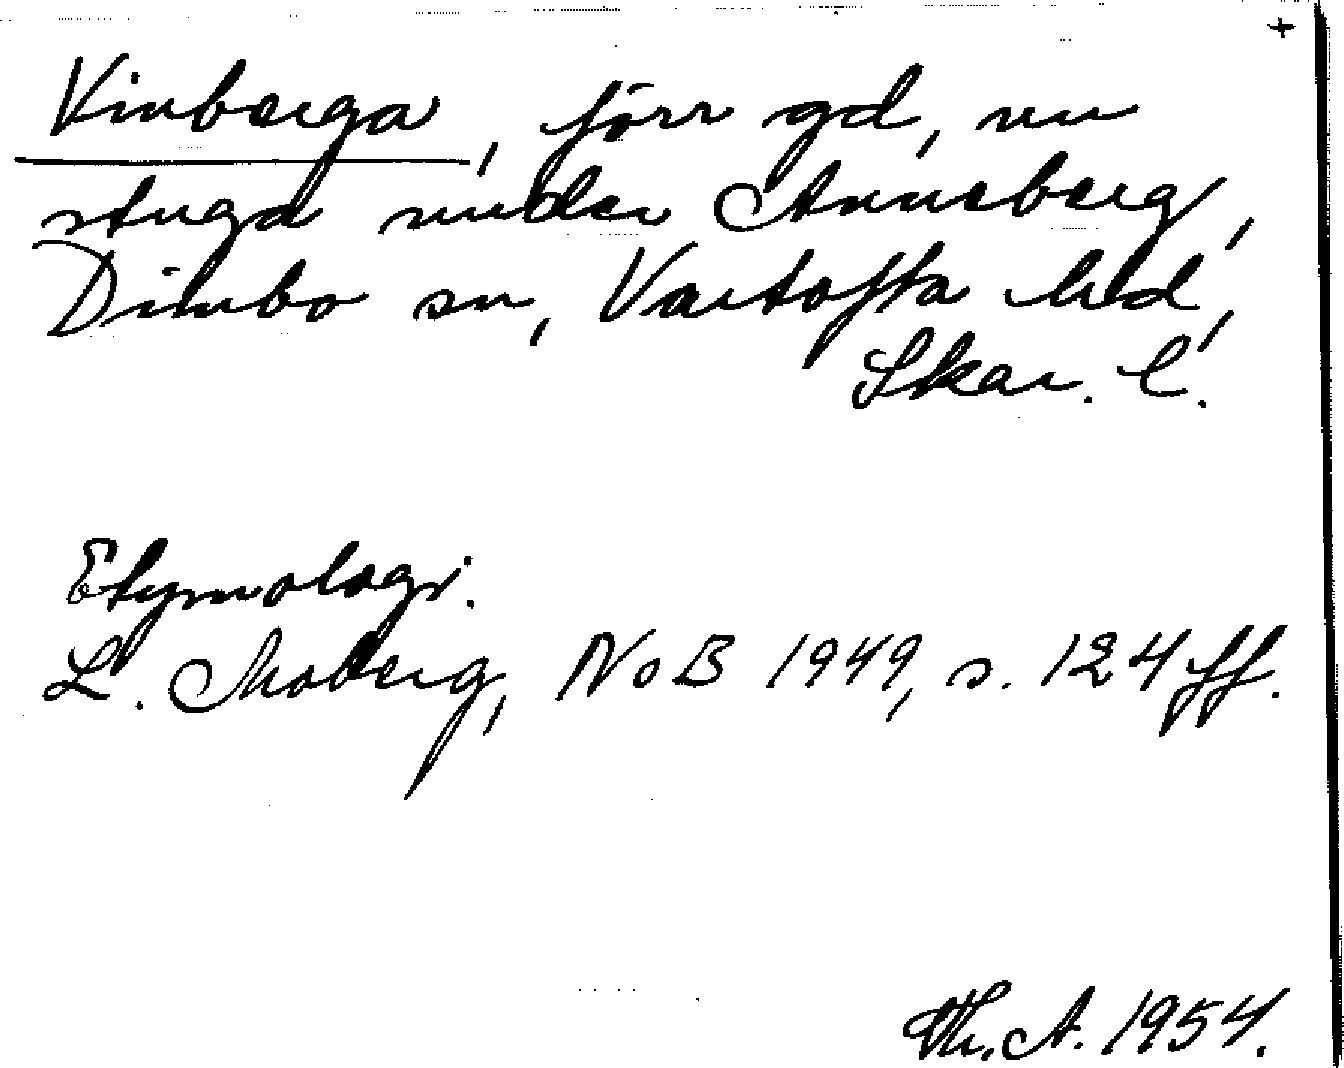 +
Vinberga, förr gd, nu
stuga under Anneberg,
Dimbo sn, Vartofta hd,
Skar. l.
Etymologi.
L. Moberg, NoB 1949, s. 124 ff.
Th. A. 1954.